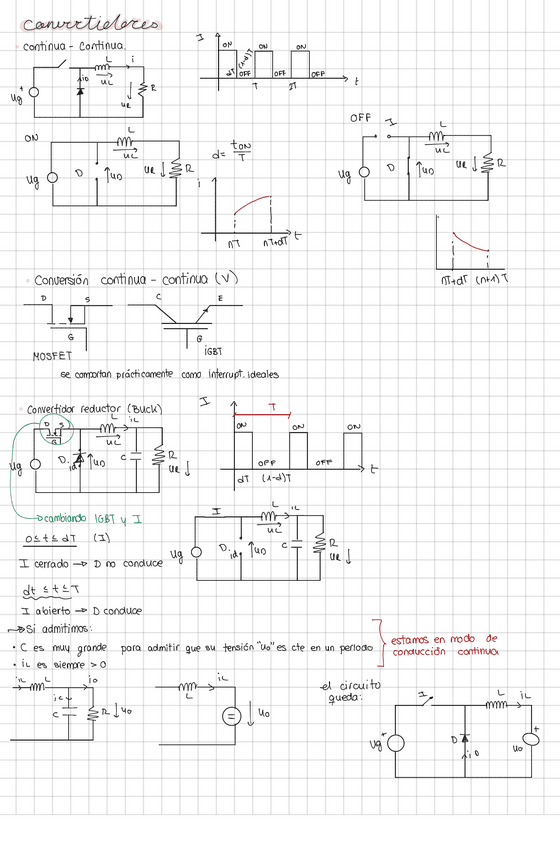 convertidores
continua - continua.
I
ON ON ON
dT (1-d)T
OFF OFF OFF
T 2T
t
L i
uL
iD
ug
+
uR
R
ON
L
uL
ug
D
uD
uR
R
d = tON/T
i
nT nT+dT
t
OFF I
L
uL
ug
D
uD
uR
R
nT+dT (n+1)T
Conversión continua - continua (V)
D S
G
MOSFET
C E
G
iGBT
se comportan prácticamente como interrupt. ideales
Convertidor reductor (Buck)
D S
G
L iL
uL
ug
D
iD
uD
C
R
uR
I
T
ON ON ON
OFF OFF
dT (1-d)T
t
cambiando IGBT y I
0 ≤ t ≤ dT (I)
I cerrado → D no conduce
I
L iL
uL
ug
D
id
uD
C
R
uR
dt ≤ t ≤ T
I abierto → D conduce
→ Si admitimos:
• C es muy grande para admitir que su tensión "uo" es cte en un periodo
• iL es siempre > 0
estamos en modo de
conducción continua
iL L io
ic
C
R
uo
L iL
uo
el circuito
queda:
I
L iL
ug
+
D
iD
+
uo